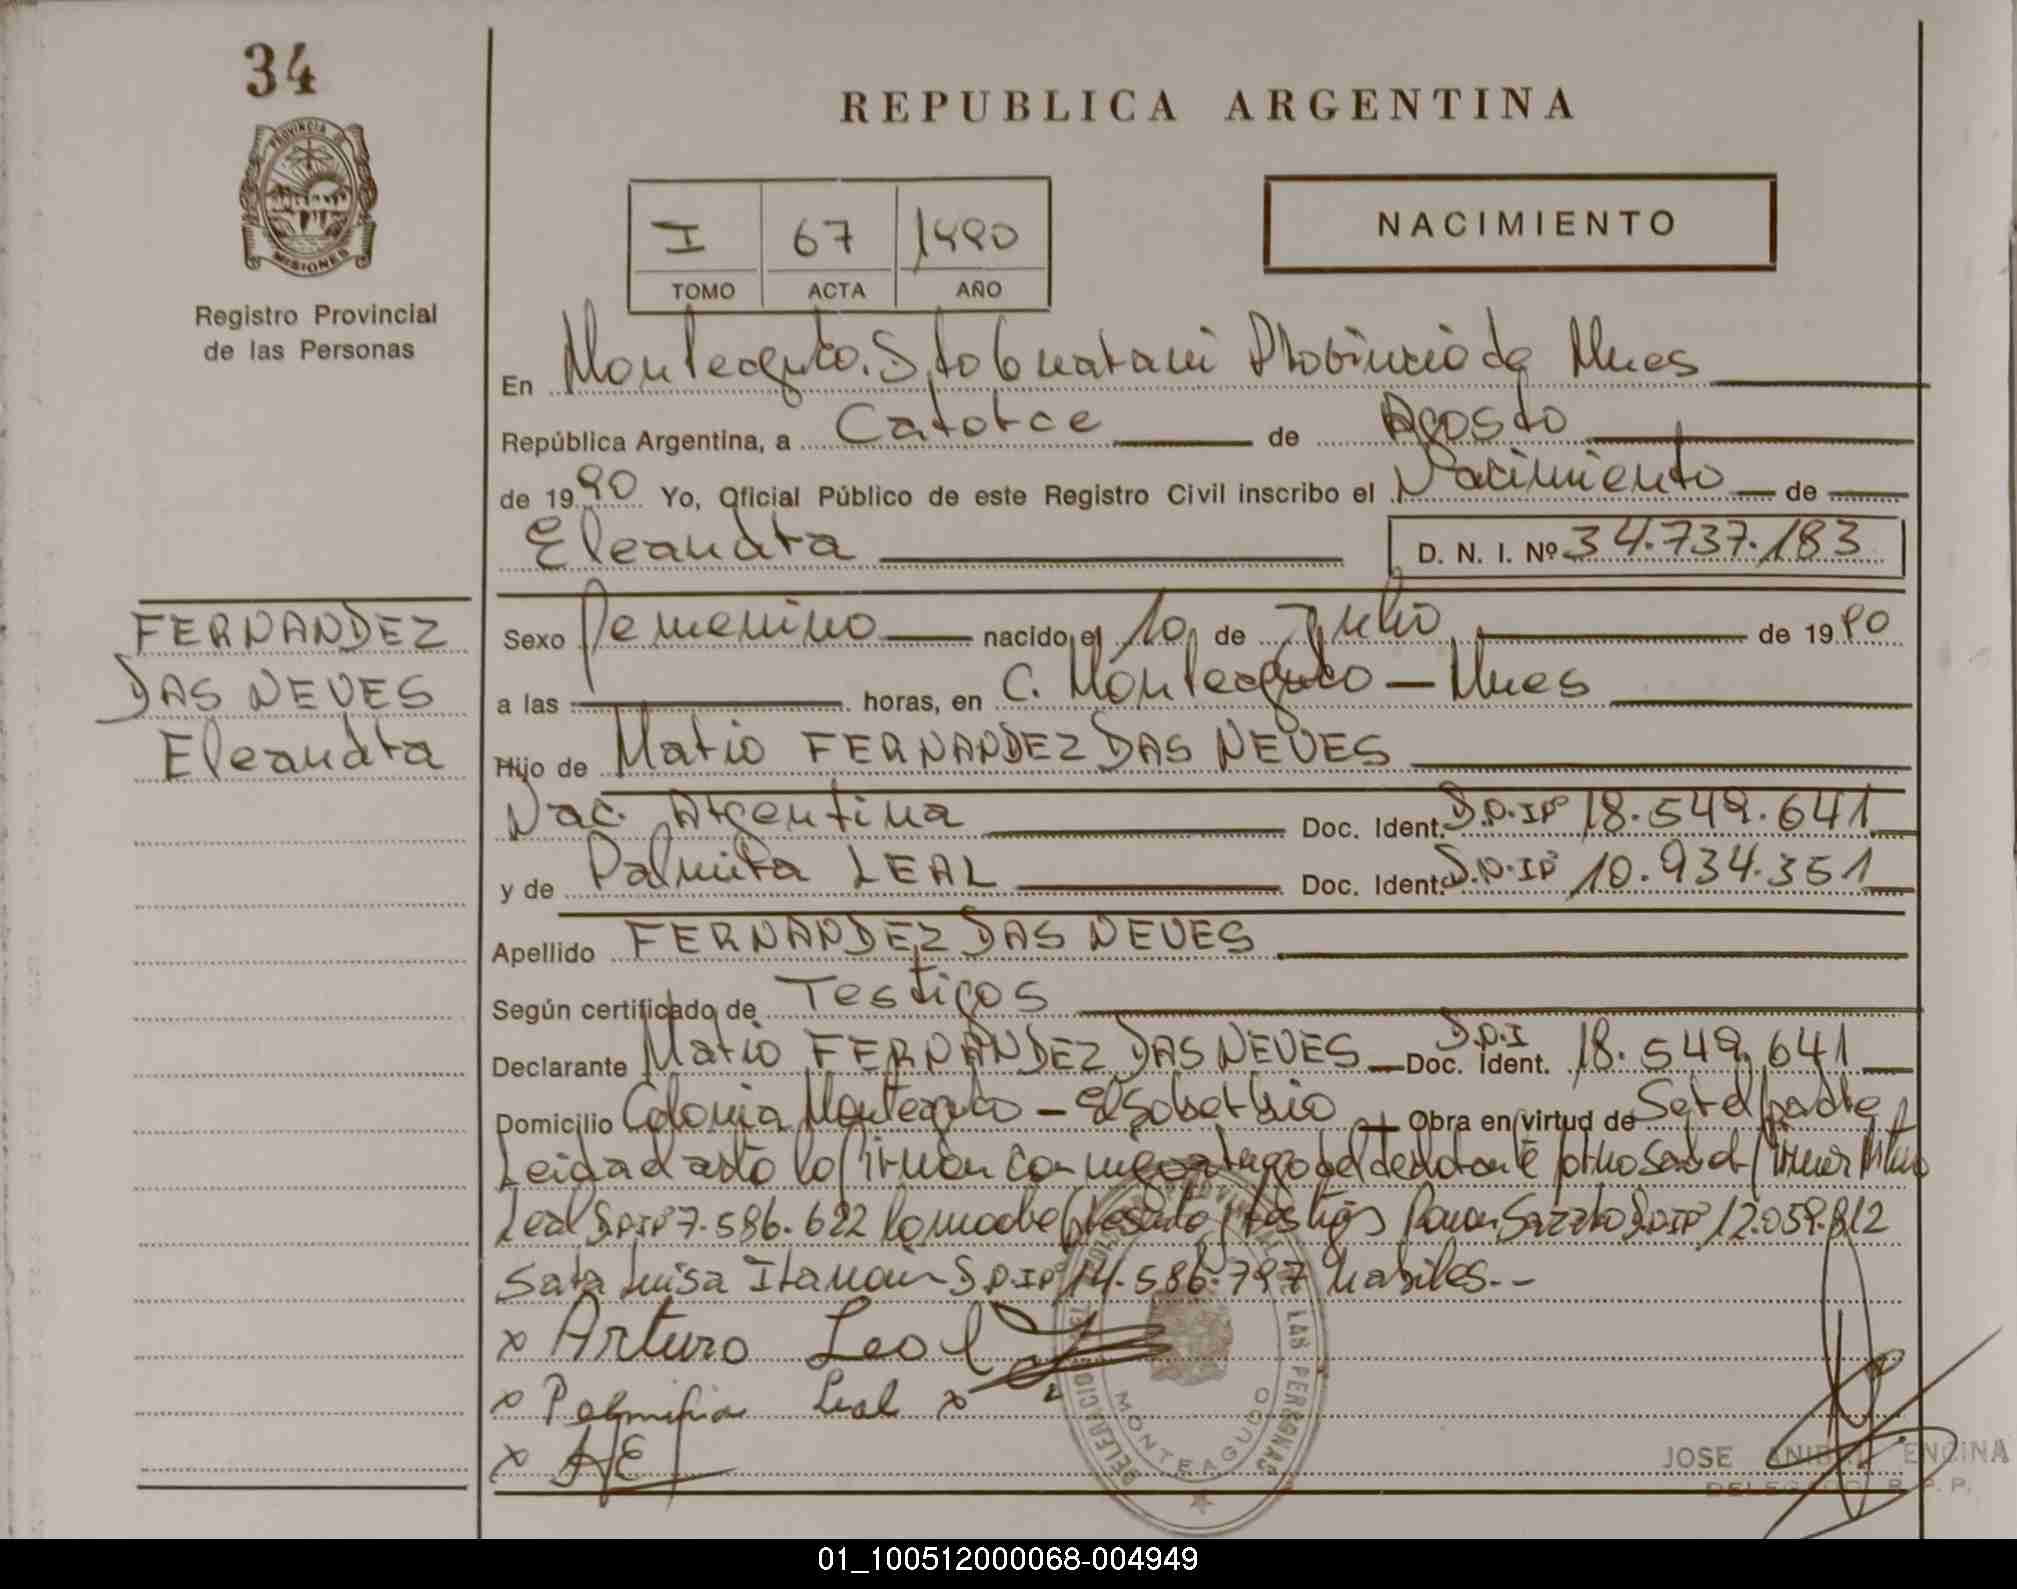 34
REPUBLICA ARGENTINA
PROVINCIA DE
MISIONES
Registro Provincial
de las Personas
NACIMIENTO
I 67 1990
TOMO ACTA AÑO
En Monteagudo. Dto Guarani Provincia de Mnes
República Argentina, a Catorce de Agosto
de 1990 Yo, Oficial Público de este Registro Civil inscribo el Nacimiento de
Eleandra D. N. I. Nº 34.737.183
FERNANDEZ
DAS NEVES
Eleandra
Sexo femenino nacido el 10 de Julio de 1990
a las horas, en C. Monteagudo - Mnes
Hijo de Mario FERNANDEZ DAS NEVES
Nac. Argentina Doc. Ident. D.N.Iº 18.549.641
y de Palmira LEAL Doc. Ident. D.N.Iº 10.934.351
Apellido FERNANDEZ DAS NEVES
Según certificado de Testigos
Declarante Mario FERNANDEZ DAS NEVES Doc. Ident. D.N.I 18.549.641
Domicilio Colonia Monteagudo - El Soberbio Obra en virtud de Ser el padre
Leida el acta la firman con migo a ruego del declarante por no saber firmar Arturo
Leal D.N.Iº 7.586.622 la madre testigos Ramon D.N.Iº 12.059.812
Sara Luisa D.N.Iº 14.586.797 habiles.--
x Arturo Leal
x Palmira Leal x
x
DELEGACION MONTEAGUDO
LAS PERSONAS
JOSE ANIBAL ENCINA
DELEGADO R. P. P.
01_100512000068-004949